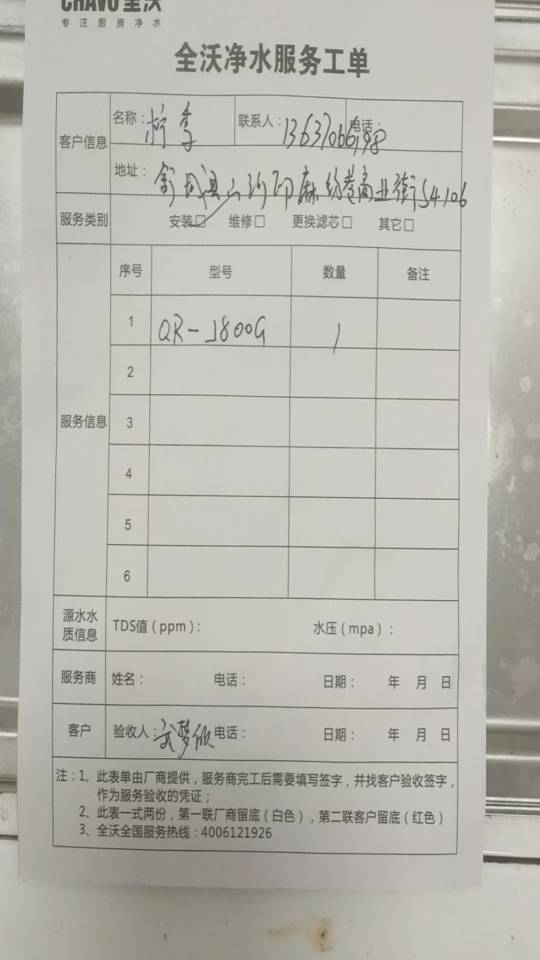 CHAVO全沃
专注厨房净水
全沃净水服务工单
客户信息
名称：
联系人：
电话：
地址：
服务类别
安装□ 维修□ 更换滤芯□ 其它□
服务信息
序号 型号 数量 备注
1 QR-J800G 1
2
3
4
5
6
源水水质信息
TDS值（ppm）： 水压（mpa）：
服务商 姓名： 电话： 日期： 年 月 日
客户 验收人： 电话： 日期： 年 月 日
注：1、此表单由厂商提供，服务商完工后需要填写签字，并找客户验收签字，
作为服务验收的凭证；
2、此表一式两份，第一联厂商留底（白色），第二联客户留底（红色）
3、全沃全国服务热线：4006121926